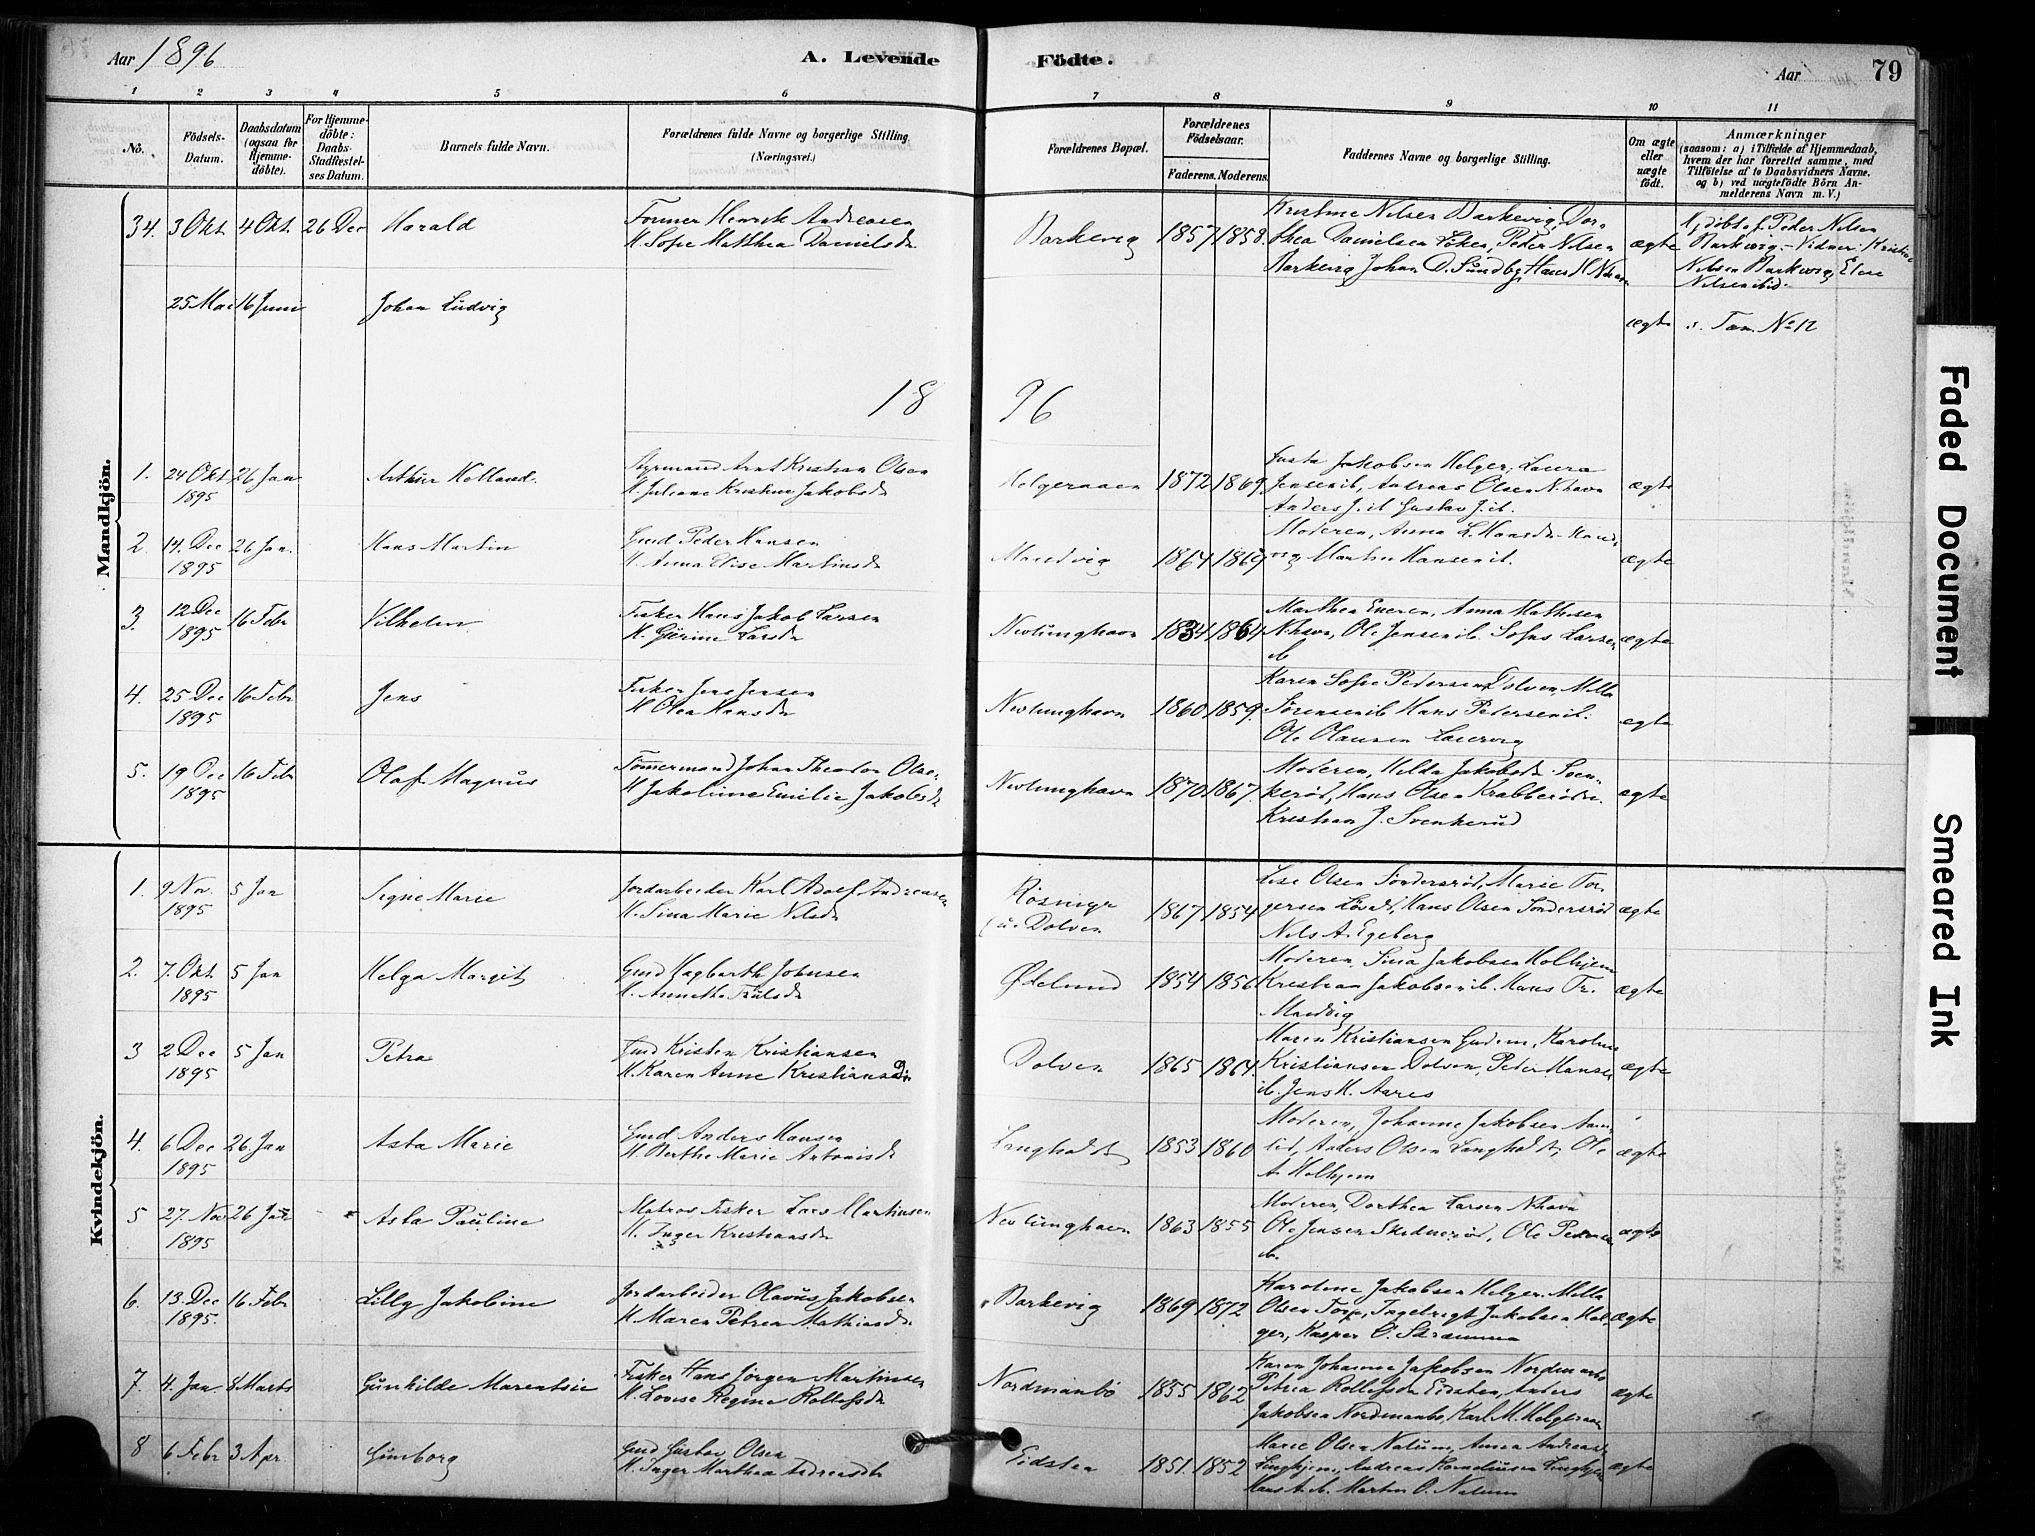 Aar 1896
A. Levende Födte.
Aar 79
1 2 3 4 5 6 7 8 9 10 11
No.
Födsels-Datum.
Daabsdatum (ogsaa for Hjemme-döbte).
For Hjemme-döbte: Daabs-Stadfæstel-ses Datum.
Barnets fulde Navn.
Forældrenes fulde Navne og borgerlige Stilling. (Næringsvei.)
Forældrenes Bopæl.
Forældrenes Födselsaar.
Faderens. Moderens.
Faddernes Navne og borgerlige Stilling.
Om ægte eller uægte födt.
Anmærkninger
(saasom: a) i Tilfælde af Hjemmedaab,
hvem der har forrettet samme, med
Tilföielse af to Daabsvidners Navne.
og b) ved uægtefödte Börn An-
melderens Navn m. V.)
Mandkjön.
34. 3 Okt 4 Okt. 26 Dec Harald
Former Henrik Andreasen
H. Sofie Matthea Danielsdr
Barkevig 1857 1858.
Kristine Nilsen Barkevig, Dor-
thea Danielsen, Peder Nilsen
Barkevig Johan D. Sundby, Hans
ægte
Hjdöbt af Peder Nilsen
Barkevig - Vidner: Kristine
Nilsen Barkevig, Else
Nilsen ibid.
25 Mai 16 Juni Johan Ludvig ægte s. Tan. No 12
18 96
1. 24 Okt 1895 26 Jan Arthur Helland.
Styrmand Arnt Kristian Olsen
H. Juliane Kristine Jakobsdr
Helgeraaen 1872 1869.
Gusta Jakobsen Helger, Laura
Jensen ib, Andreas Olsen N.havn
Anders J. ib Gustav J. ib.
ægte
2 14. Dec 1895 26 Jan. Hans Martin
Gmd Peder Hansen
H. Anna Elise Martinsdr
Manvig 1864 1869
Moderen, Anna L. Hansdr
Martin Hansen ib.
ægte
3. 12 Dec 1895 16 Febr Vilhelm
Fisker Hans Jakob Larsen
H. Gurine Larsdr
Nevlunghavn 1834 1864
Marthea Evensen, Anna Mathisen
N.havn, Ole Jensen ib. Sofus Larsen
ib
ægte
4. 25 Dec 1895 16 Febr Jens
Fisker Jens Jensen
H Olea Hansdr
Nevlunghavn 1860 1859.
Karen Sofie Pedersen Dolven Milla
Sörensen ib Hans Pedersen ib.
Ole Olausen Laurvig
ægte
5. 19 Dec 1895 16 Febr Olaf Magnus
Tömmermand Johan Theodor Olsen
H Jakobine Emilie Jakobsdr
Nevlunghavn 1870 1867.
Moderen, Hilda Jakobsdr Sven-
kerød, Hans Olsen Krabberødn.
Kristian J. Svenkerud
ægte
Kvindekjön.
1. 9 Nov. 1895 5 Jan Signe Marie
Jordarbeider Karl Adolf Andreasen
H. Sina Marie Nilsdr
Røsninge (u. Dolven 1867 1854
Lise Olsen Søndersrød, Marie Tor-
gersen, Hans Olsen Søndersrød
Nils A. Egeberg
ægte
2. 7. Okt 1895 5 Jan Helga Margit
Gmd Hagbarth Johnsen
H. Annethe Trulsdr
Ødelund 1854 1856
Moderen, Sina Jakobsen Holhjem
Kristian Jakobsen ib. Hans Tr.
Manvig
ægte
3 2 Dec 1895 5 Jan Petra
Gmd Kristen Kristiansen
H. Karen Anne Kristiansdr
Dolven 1865 1864.
Maren Kristiansen Gudem, Karoline
Kristiansen Dolven, Peter Hansen
ib. Jens H. Aares
ægte
4. 6 Dec 1895 26 Jan Asta Marie
Gmd Anders Hansen
H Berthe Marie Antonisdr
Langholdt 1853 1860
Moderen, Johanne Jakobsen
Anders Olsen Langholdt, Ole
A. Holhjem
ægte
5 27. Nov 1895 26 Jan Asta Pauline
Matros Fisker Lars Martinsen
H. Inger Kristiansdr
Nevlunghavn 1863 1855
Moderen, Dorthea Larsen N.havn
Ole Jensen Skidnerød, Ole Pedersen
ib.
ægte
6. 13. Dec 1895. 16 Febr Lilly Jakobine
Jordarbeider Olavus Jakobsen
H. Maren Petrea Mathiasdr.
Barkevig 1869 1872
Karoline Jakobsen Helger. Milla
Olsen Torp, Ingebregt Jakobsen Hel-
ger, Kasper O. Skramme
ægte
7. 4. Jan. 8 Marts Gunhilde Marentsie
Fisker Hans Jörgen Martinsen
H. Lovise Regine Rollefsdr
Nordmanbö 1855 1862
Karen Johanne Jakobsen Nordmanbö
Petrea Rollefsdr Eidsten, Anders
Jakobsen Nordmanbö, Karl M. Helgeraaen
ægte
8 6 Febr 3 Apr Gunborg
Gmd Gustav Olsen
H. Inger Marthea Andreasdr
Eidsten 1851. 1852
Marie Olsen Nalum, Anna Andreasdr
Lunghjem, Andreas Korneliusen Lunghjem
Hans A. ib. Martin O. Nalum
ægte
Faded Document
Smeared Ink